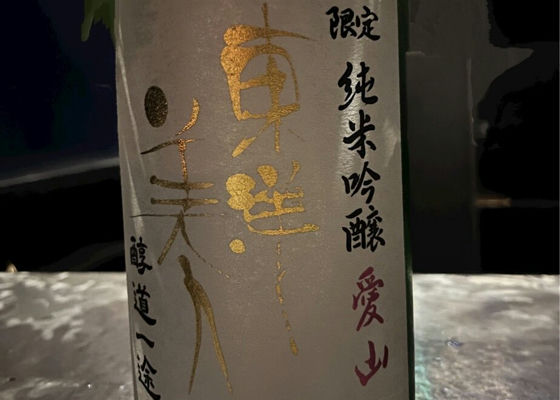 限定
純米吟醸
愛山
東洋
美人
醇道一途